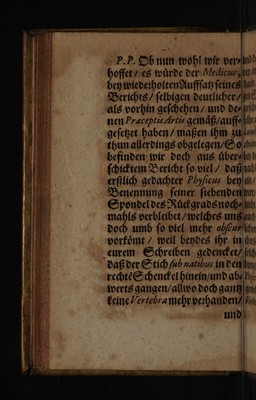 P.P. Ob nun wohl wir ver-
hoffet / es würde der Medicus,
bey wiederholten Auffsatz seines
Berichts / selbigen deutlicher /
als vorhin geschehen / und de-
nen Præceptis Artis gemäß / auff-
gesetzet haben / maßen ihm zu
thun allerdings obgelegen / So
befinden wir doch aus über-
schicktem Bericht so viel / daß
erstlich gedachter Physicus bey
Benennung seiner siebenden
Spondel des Rückgrads noch-
mahls verbleibet / welches uns
doch umb so viel mehr obscur
vorkömt / weil beydes ihr in
eurem Schreiben gedencket /
daß der Stich sub natibus in den
rechtē Schenckel hinein / und ab-
werts gangen / allwo doch gantz
keine Vertebra mehr verhanden /
und